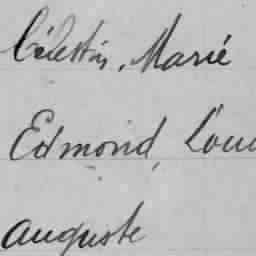 Célestin, Marié
Edmond, Loui
auguste